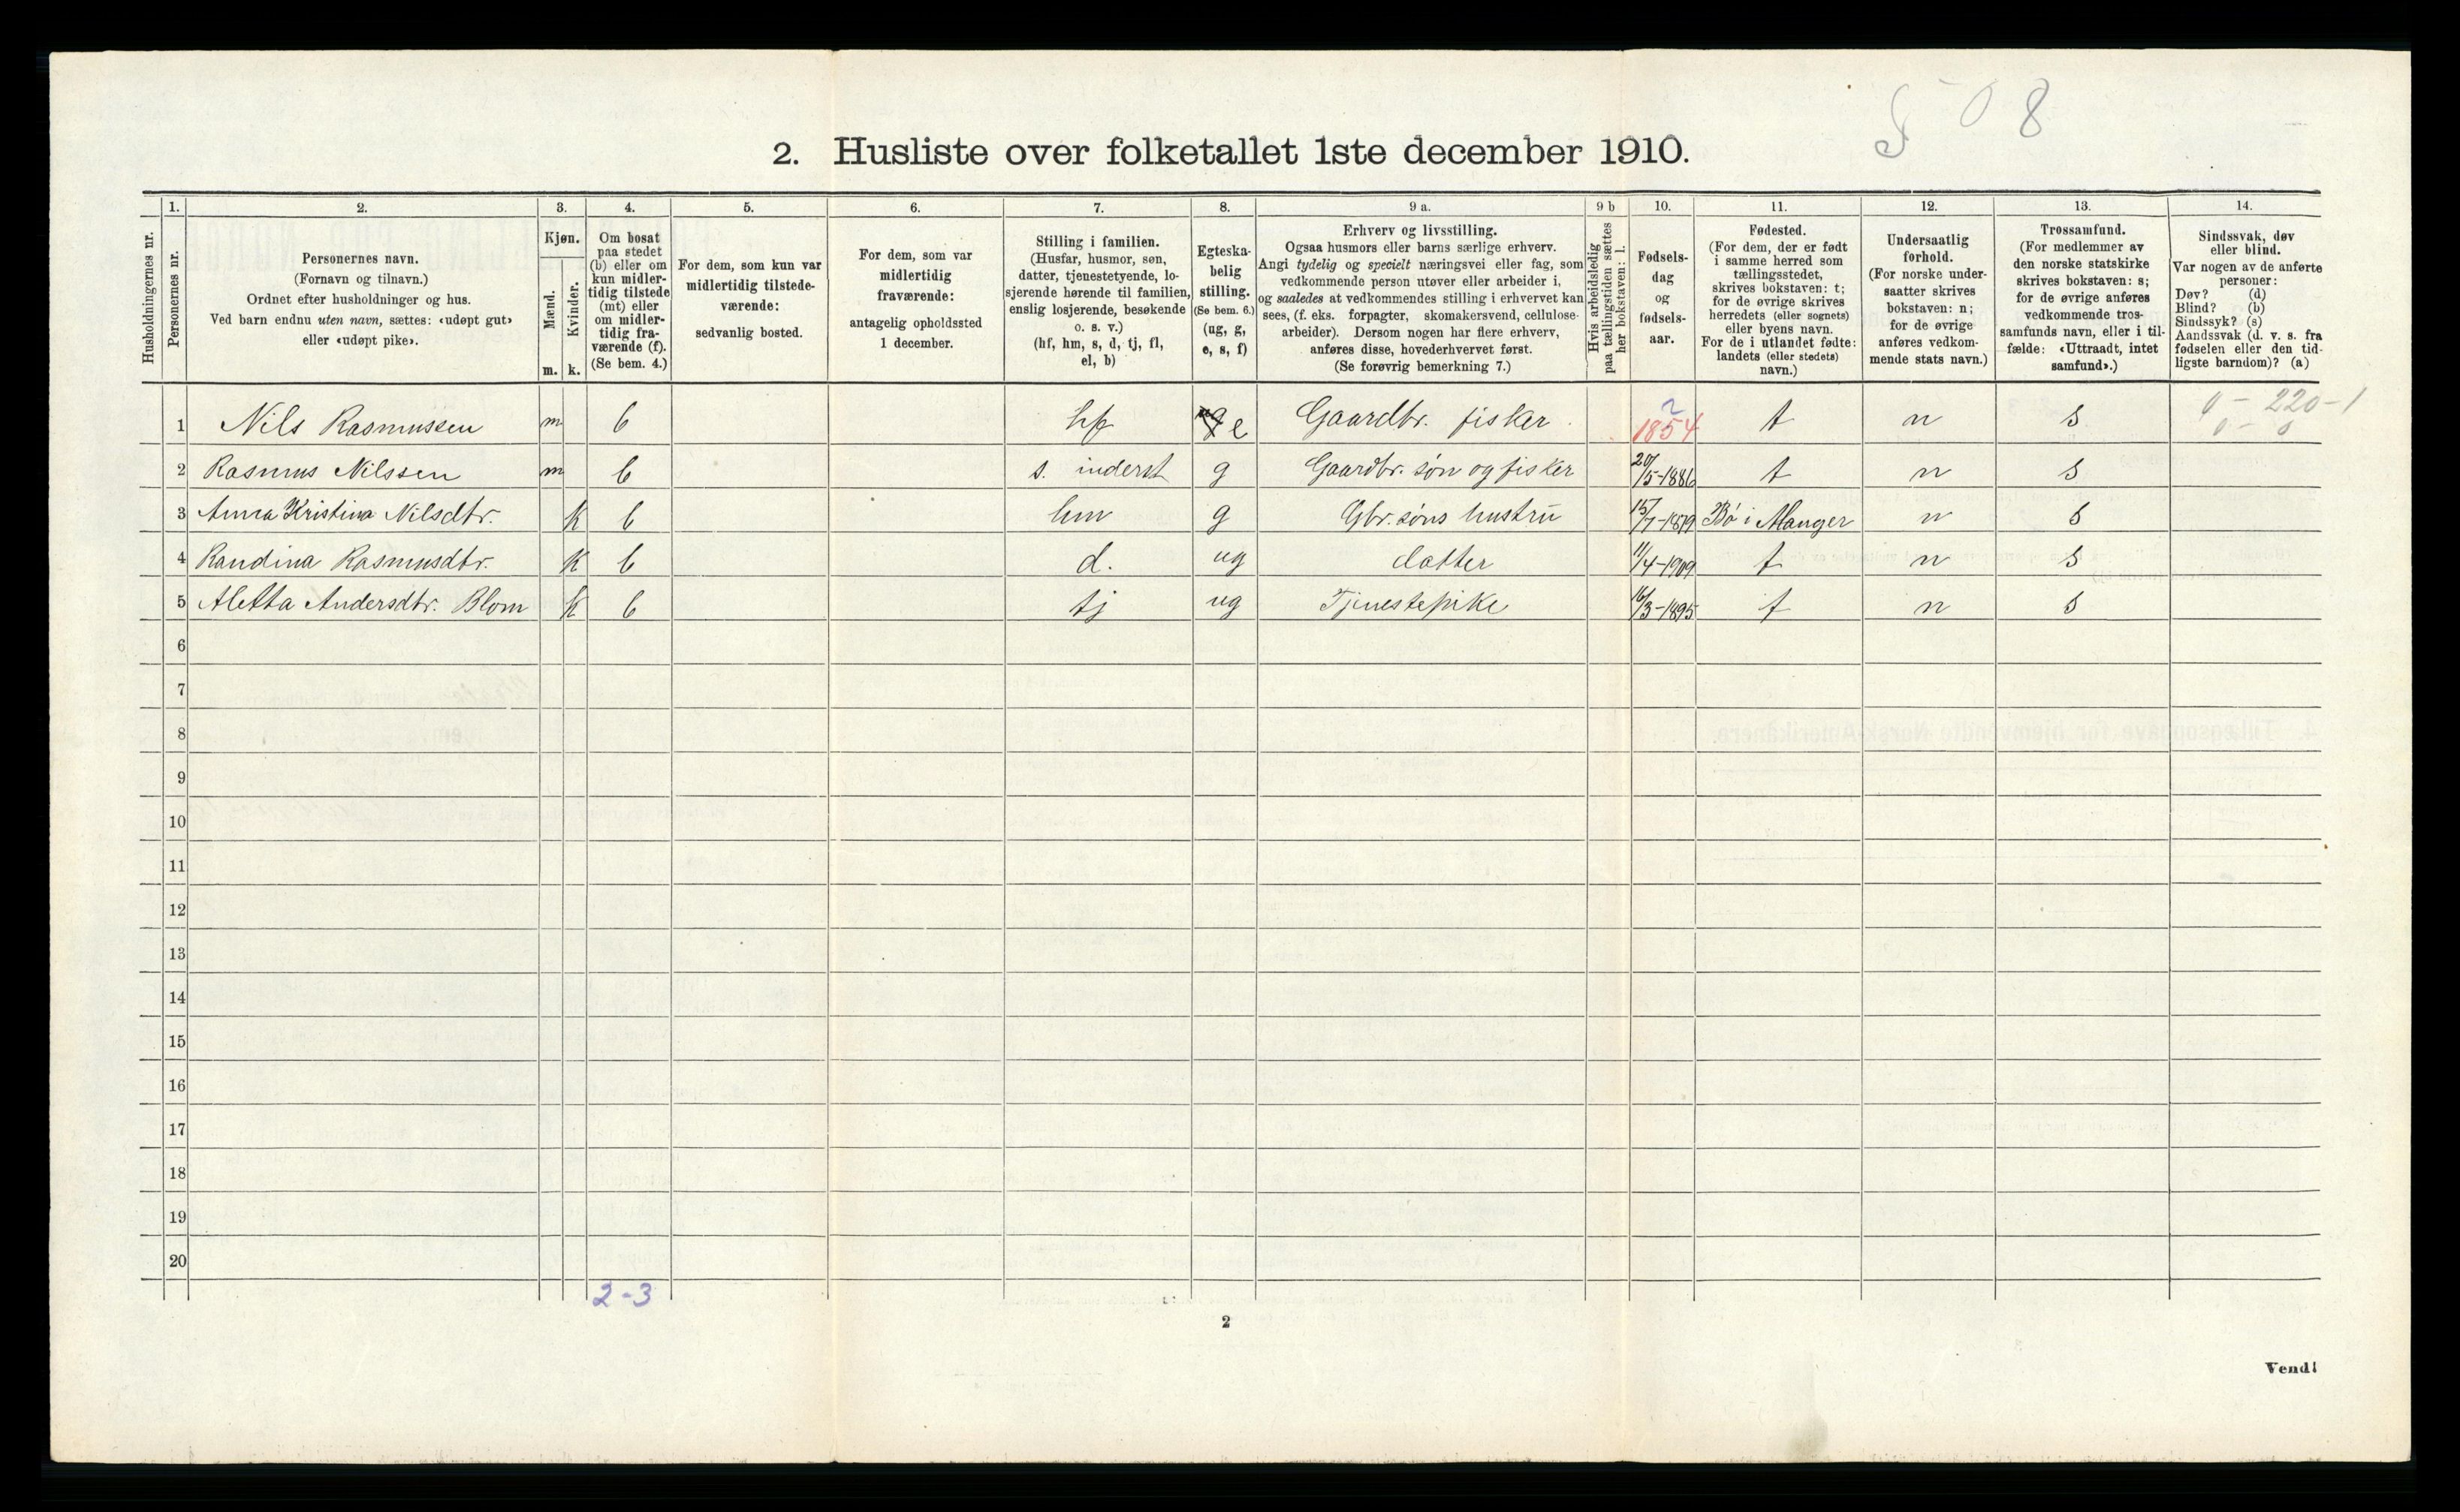 508
2. Husliste over folketallet 1ste december 1910.
Husholdningernes nr.
1. Personernes nr.
2. Personernes navn.
(Fornavn og tilnavn.)
Ordnet efter husholdninger og hus.
Ved barn endnu uten navn, sættes: «udøpt gut»
eller «udøpt pike».
3. Kjøn.
Mænd. m.
Kvinder. k.
4. Om bosat
paa stedet
(b) eller om
kun midler-
tidig tilstede
(mt) eller
om midler-
tidig fra-
værende (f).
(Se bem. 4.)
5. For dem, som kun var
midlertidig tilstede-
værende:
sedvanlig bosted.
6. For dem, som var
midlertidig
fraværende:
antagelig opholdssted
1 december.
7. Stilling i familien.
(Husfar, husmor, søn,
datter, tjenestetyende, lo-
sjerende hørende til familien,
enslig losjerende, besøkende
o. s. v.)
(hf, hm, s, d, tj, fl,
el, b)
8. Egteska-
belig
stilling.
(Se bem. 6.)
(ug, g,
e, s, f)
9 a. Erhverv og livsstilling.
Ogsaa husmors eller barns særlige erhverv.
Angi tydelig og specielt næringsvei eller fag, som
vedkommende person utøver eller arbeider i,
og saaledes at vedkommendes stilling i erhvervet kan
sees, (f. eks. forpagter, skomakersvend, cellulose-
arbeider). Dersom nogen har flere erhverv,
anføres disse, hovederhvervet først.
(Se forøvrig bemerkning 7.)
9 b Hvis arbeidsledig
paa tællingstiden sættes
her bokstaven: l.
10. Fødsels-
dag
og
fødsels-
aar.
11. Fødested.
(For dem, der er født
i samme herred som
tællingsstedet,
skrives bokstaven: t;
for de øvrige skrives
herredets (eller sognets)
eller byens navn.
For de i utlandet fødte:
landets (eller stedets)
navn.)
12. Undersaatlig
forhold.
(For norske under-
saatter skrives
bokstaven: n;
for de øvrige
anføres vedkom-
mende stats navn.)
13. Trossamfund.
(For medlemmer av
den norske statskirke
skrives bokstaven: s;
for de øvrige anføres
vedkommende tros-
samfunds navn, eller i til-
fælde: «Uttraadt, intet
samfund».)
14. Sindssvak, døv
eller blind.
Var nogen av de anførte
personer:
Døv? (d)
Blind? (b)
Sindssyk? (s)
Aandssvak (d. v. s. fra
fødselen eller den tid-
ligste barndom)? (a)
1 Nils Rasmussen m b hf e Gaardbr. fisker 1854 t n s 0 - 220-1
0 - 0
2 Rasmus Nilssen m b s. inderst g Gaardbr. søn og fisker 20/5-1886 t n s
3 Anna Kristina Nilsdtr. k b hm g Gbr. søns hustru 15/7-1879 Bø i Manger n s
4 Randina Rasmusdtr. k b d. ug datter 11/4-1909 t n s
5 Aletta Andersdtr. Blom k b tj ug Tjenestepike 16/3-1895 t n s
6
7
8
9
10
11
12
13
14
15
16
17
18
19
20
2-3
2
Vend!